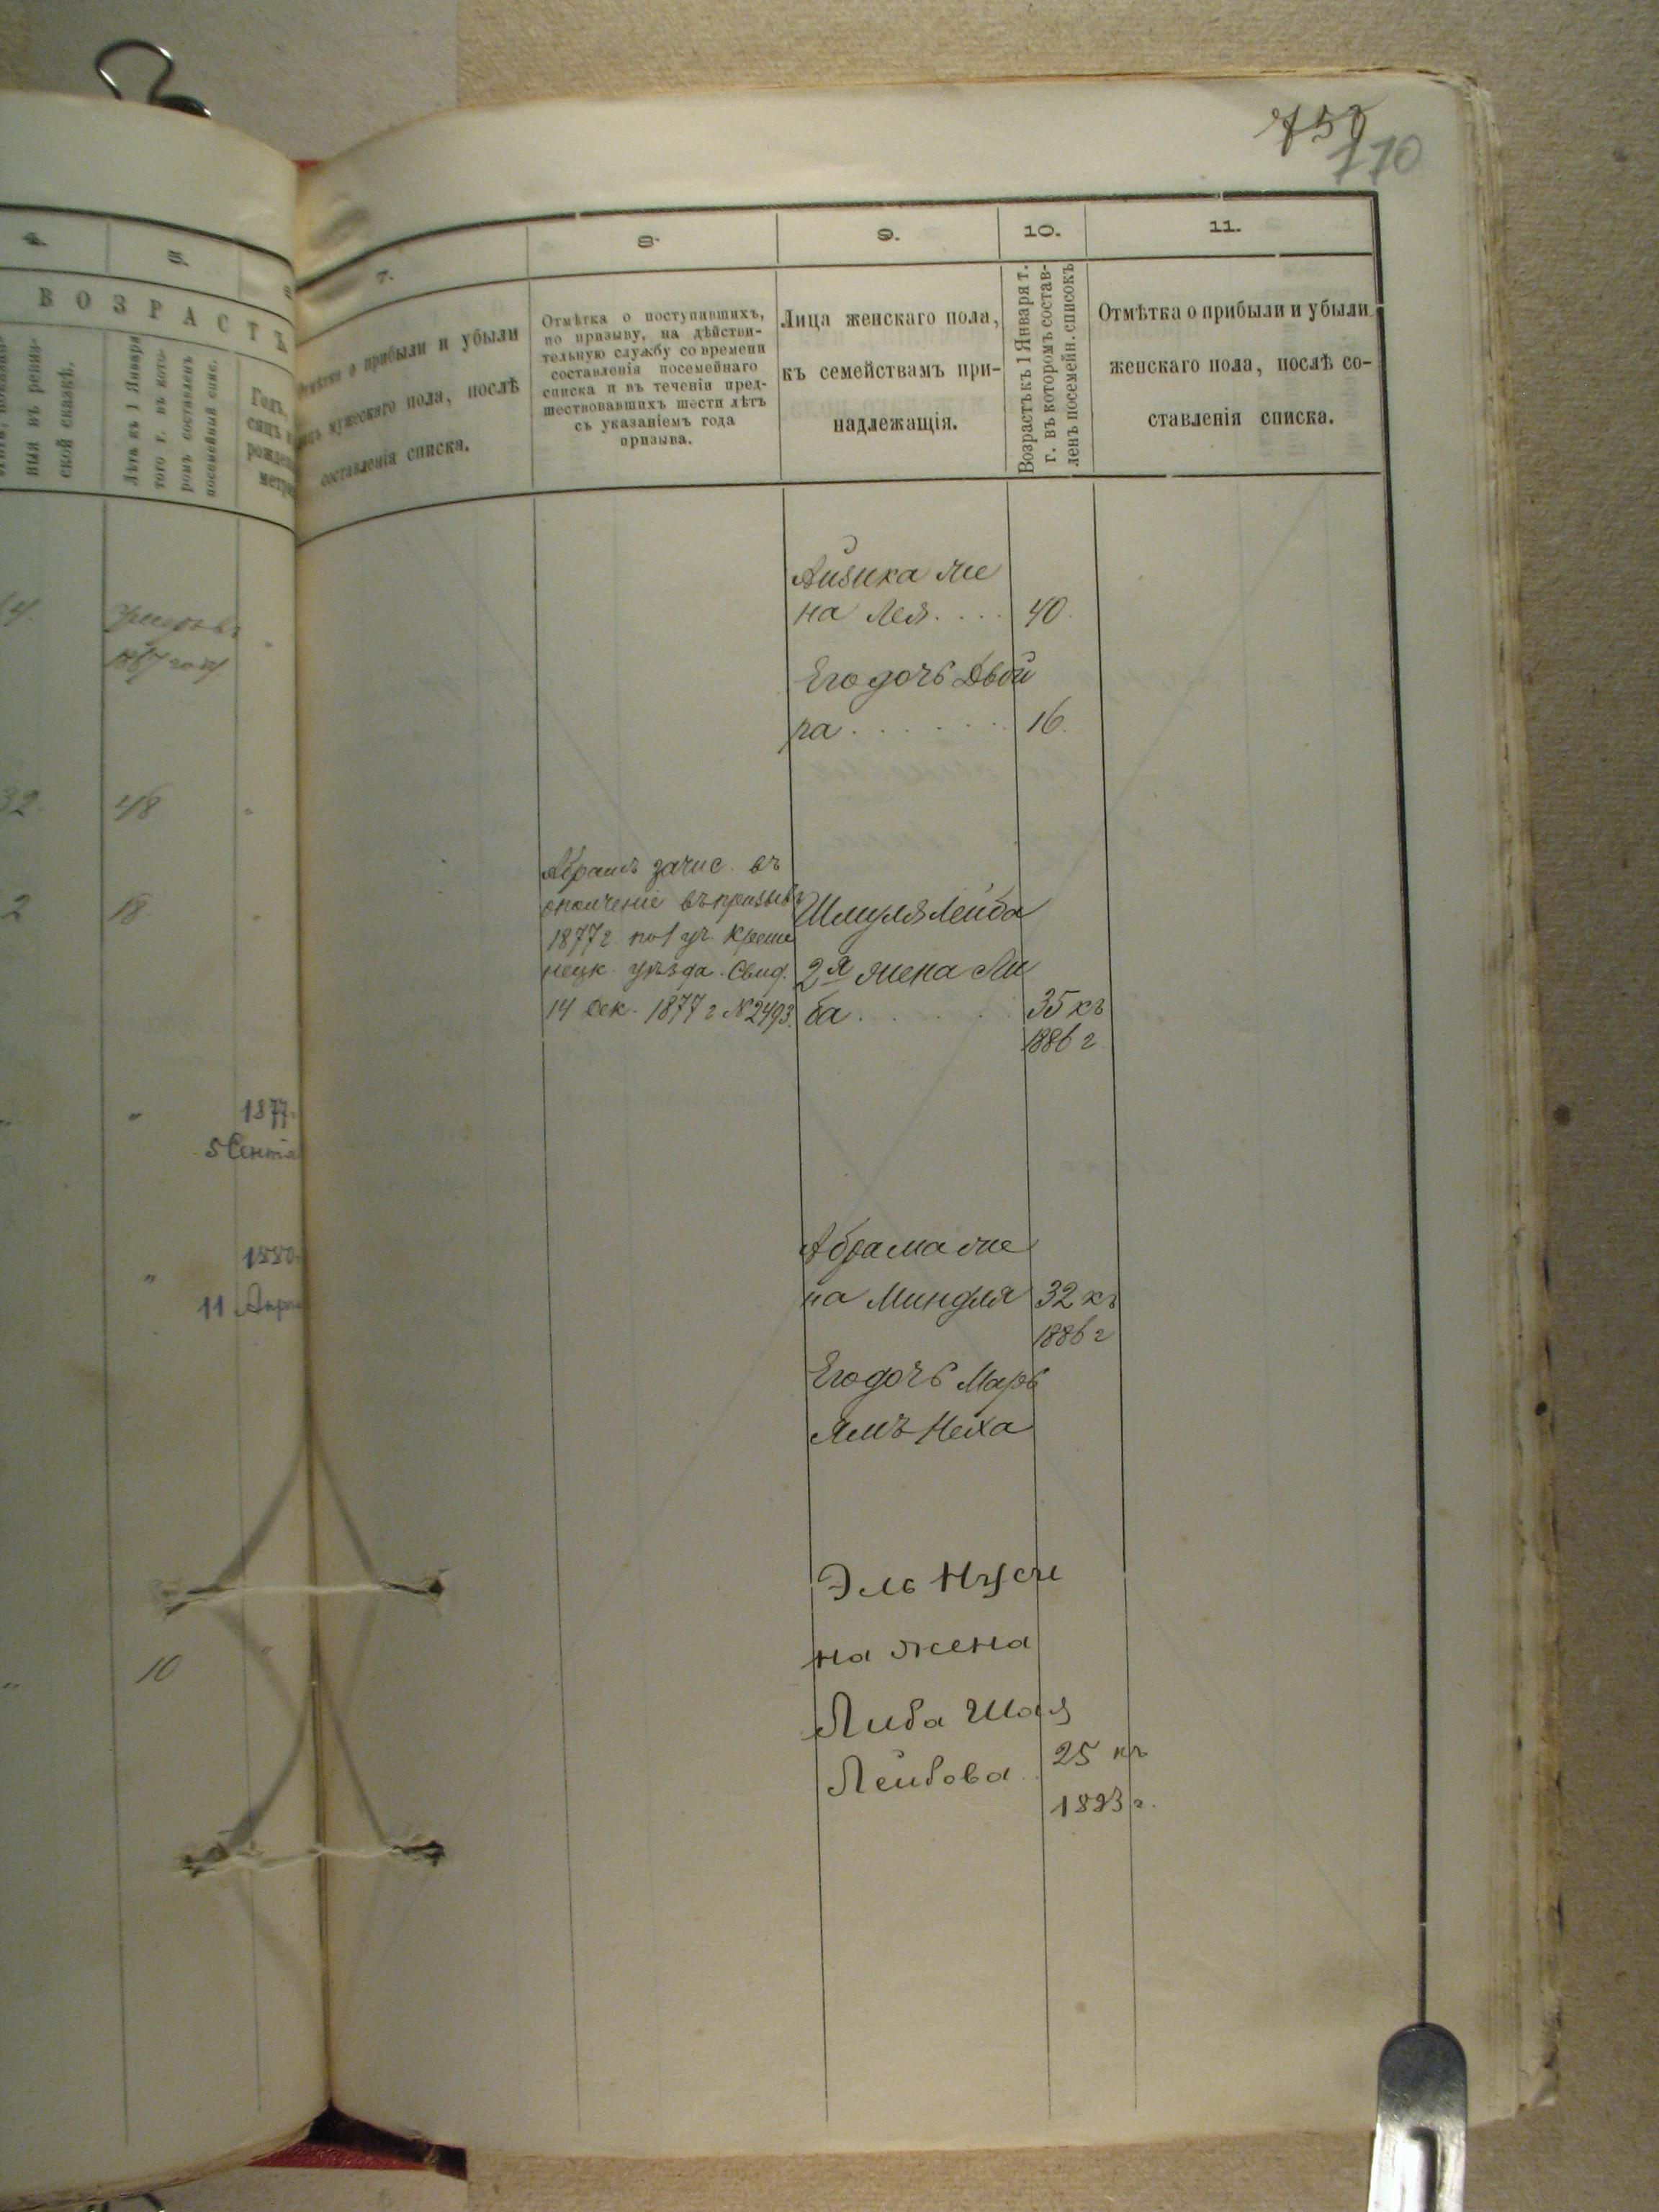 759
110
4.
5.
ВОЗРАСТЪ
ской сказкѣ.
Лѣтъ къ 1 Января
того г. въ кото-
ромъ составленъ
посемейный спис.
32.
48
2
18
"
1877.
5 Сентя
"
1880.
11 Апр
"
10
7.
8.
9.
10.
11.
Отмѣтка о прибыли и убыли
лицъ мужескаго пола, послѣ
составленія списка.
Отмѣтка о поступившихъ,
по призыву, на дѣйстви-
тельную службу со времени
составленія посемейнаго
списка и въ теченіи пред-
шествовавшихъ шести лѣтъ
съ указаніемъ года
призыва.
Лица женскаго пола,
къ семействамъ при-
надлежащія.
Возрастъ къ 1 Января т.
г. въ которомъ состав-
ленъ посемейн. списокъ
Отмѣтка о прибыли и убыли
женскаго пола, послѣ со-
ставленія списка.
Айзика же
на Лея . . . . 40.
Его дочь Двой
ра . . . . . . 16.
Абрамъ зачис. въ
ополченіе въ призывъ
1877 г. по 1 уч. Креме
нецк. уѣзда. Свид.
14 Дек. 1877 г. № 2493.
Шмуля Лейба
2я жена Ли
ба . . . . . 35 къ
1886 г.
Абрама же
на Миндля 32 къ
1886 г
Его дочь Марь
ямъ Неха
Эль Нуси
на жена
Либа Шая
Лейбова 25 къ
1893 г.